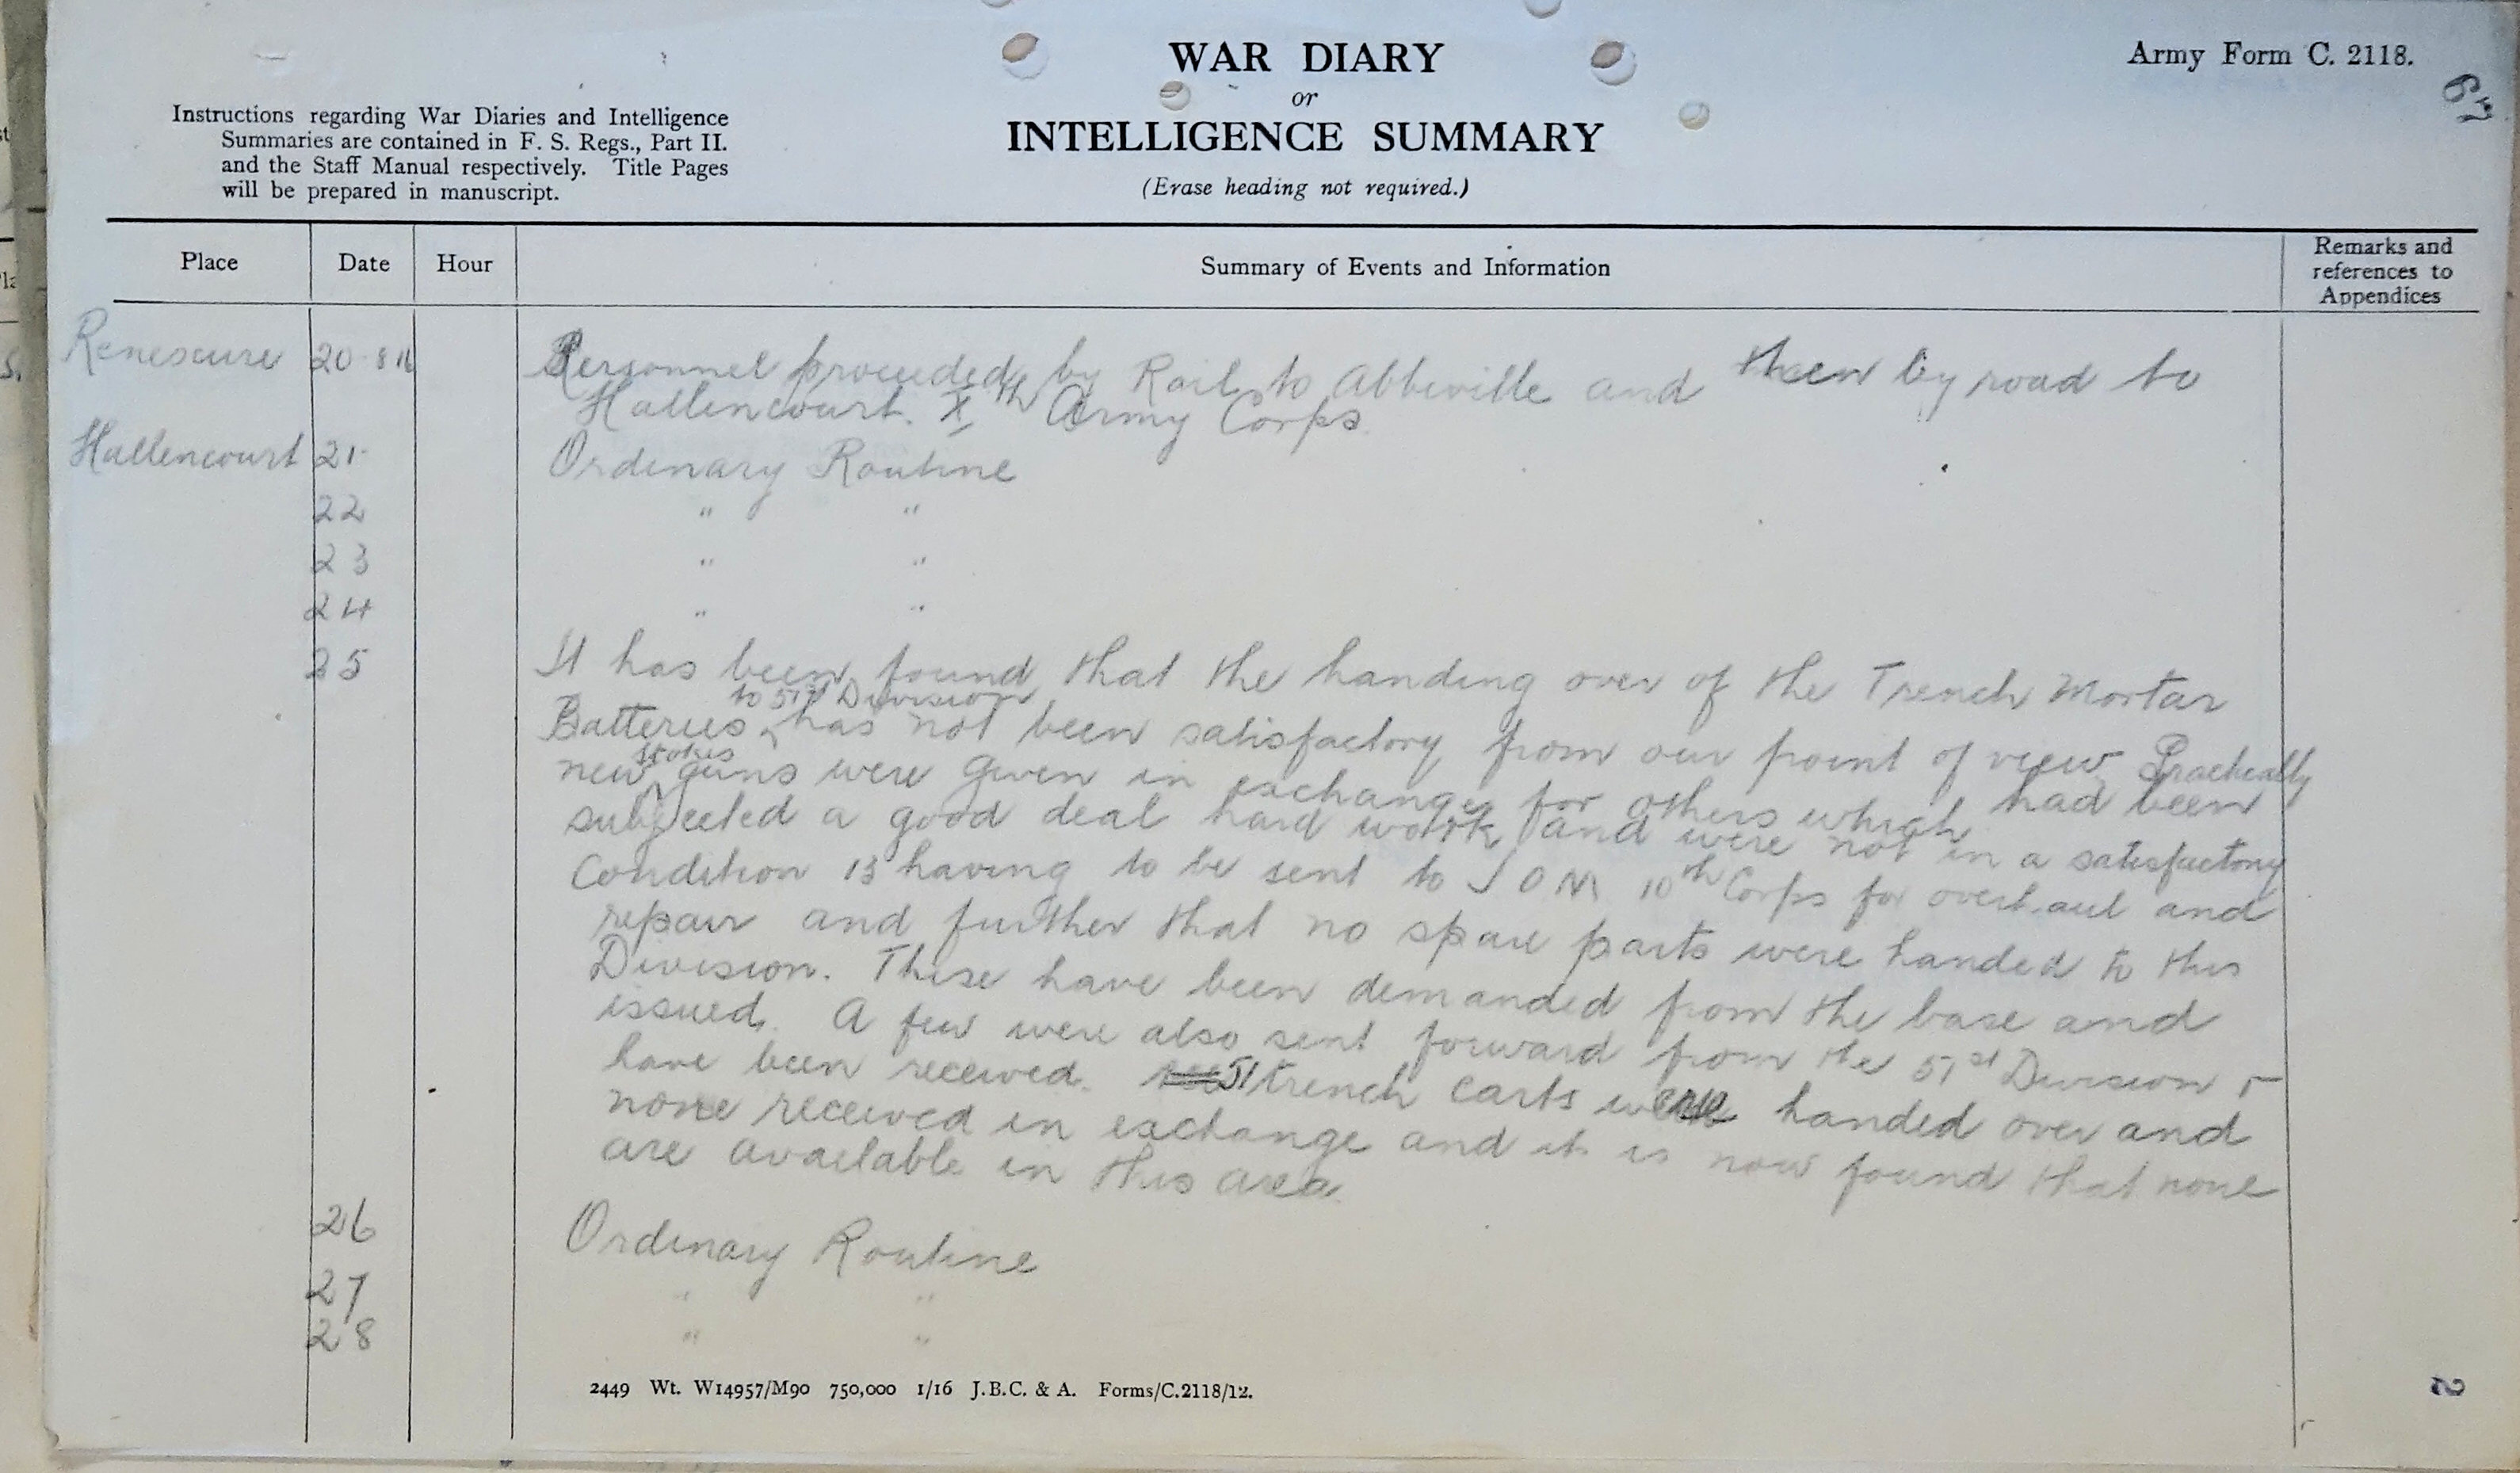 WAR DIARY
or
INTELLIGENCE SUMMARY
(Erase heading not required.)
Army Form C. 2118.
67
Instructions regarding War Diaries and Intelligence
Summaries are contained in F. S. Regs., Part II.
and the Staff Manual respectively. Title Pages
will be prepared in manuscript.
Place Date Hour Summary of Events and Information Remarks and references to Appendices
Renescure 20-8-16 Personnel proceeded by Rail to Abbeville and then by road to
Hallencourt. Xth Army Corps.
Hallencourt 21- Ordinary Routine
22 " "
23 " "
24 " "
25 It has been found that the handing over of the Trench Mortar
Batteries to 51st Division has not been satisfactory from our point of view Practically
new Stokes guns were given in exchange for others which had been
subjected a good deal hard work and were not in a satisfactory
Condition 13 having to be sent to I O M 10th Corps for overhaul and
repair and further that no spare parts were handed to this
Division. These have been demanded from the base and
issued. A few were also sent forward from the 51st Division &
have been received. 51 trench carts were handed over and
none received in exchange and it is now found that none
are available in this area.
26 Ordinary Routine
27 " "
28 " "
2449 Wt. W14957/M90 750,000 1/16 J.B.C. & A. Forms/C.2118/12.
2